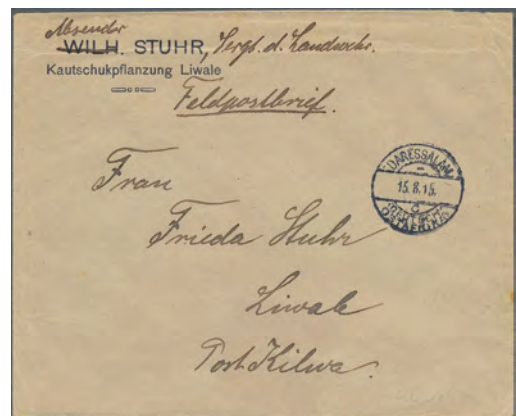 Absender
WILH. STUHR, Sergt. d. Landwehr.
Kautschukpflanzung Liwale
Feldpostbrief.
DARESSALAM
15.8.15.
d
DEUTSCH-
OSTAFRIKA
Frau
Frieda Stuhr
Liwale
Post Kilwa.